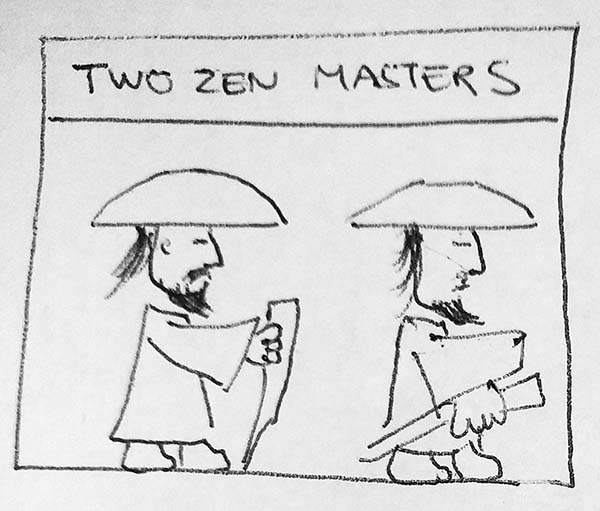 TWO ZEN MASTERS